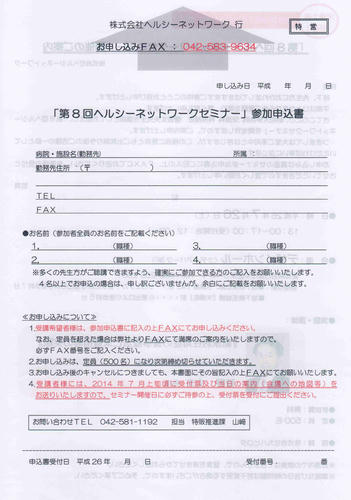 株式会社ヘルシーネットワーク 行
特営
お申し込みFAX ： 042-583-9634
申し込み日 平成　年　月　日
「第８回ヘルシーネットワークセミナー」参加申込書
病院・施設名(勤務先)　所属：
勤務先住所　（〒　）
TEL
FAX
●お名前（参加者全員のお名前をご記載ください）
1.　（職種）　3.　（職種）
2.　（職種）　4.　（職種）
※多くの先生方がご聴講できますよう、確実にご参加できる方のご記入をお願いいたします。
４名以上でお申込の場合は、申し訳ございませんが、余白にご記載をお願いいたします。
≪お申し込みについて≫
1.受講希望者様は、参加申込書に記入の上FAXにてお申し込みください。
なお、定員を超えた場合は弊社よりFAXにて満席のご案内をいたしますので、
必ずFAX番号をご記入ください。
2.お申し込みは、定員（500名）になり次第締め切らせていただきます。
3.お申し込み後のキャンセルにつきましても、本書面にその旨記入の上FAXにてお願いいたします。
4.受講者様には、2014年７月上旬頃に受付票及び当日の案内（会場への地図等）を
お送りいたしますので、セミナー開催日に必ずご持参の上、受付票を受付にご提出ください。
お問い合わせTEL　042-581-1192　担当　特販推進課　山﨑
申込書受付日　平成26年　月　日　受付番号：　番